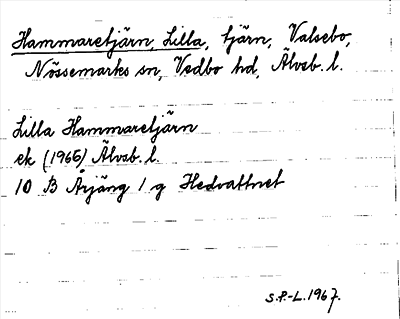 Hammaretjärn, Lilla, tjärn, Valsebo,
Nössemarks sn, Vedbo hd, Älvsb. l.
Lilla Hammaretjärn
ek (1965) Älvsb. l.
10 B Årjäng 1 g Hedvattnet
S.P.-L. 1967.